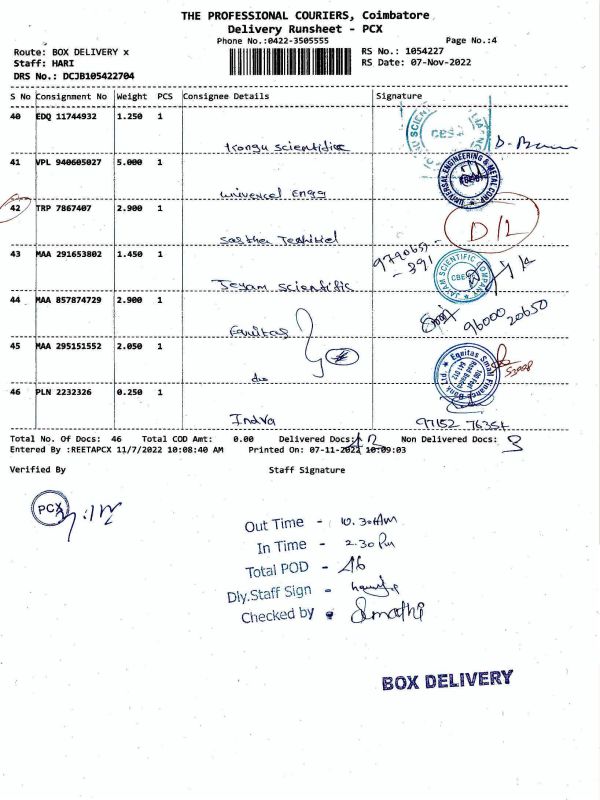 THE PROFESSIONAL COURIERS, Coimbatore
Delivery Runsheet - PCX
Phone No.:0422-3505555
Page No.:4
Route: BOX DELIVERY x
RS No.: 1054227
Staff: HARI
RS Date: 07-Nov-2022
DRS No.: DCJB105422704
S No Consignment No Weight PCS Consignee Details Signature
40 EDQ 11744932 1.250 1
Kongu scientific
CBE
41 VPL 940605027 5.000 1
Universal Engg
UNIVERSAL ENGINEERING & METAL CORP
42 TRP 7867407 2.900 1
D/L
43 MAA 291653802 1.450 1
Jeyam scientific
JAYAM SCIENTIFIC COMPANY
CBE
44 MAA 857874729 2.900 1
Equitas
96000 20650
45 MAA 295151552 2.050 1
do
Equitas Small Finance Bank Ltd.
46 PLN 2232326 0.250 1
Indva
97152 76354
Total No. Of Docs: 46 Total COD Amt: 0.00 Delivered Docs: Non Delivered Docs: 3
Entered By :REETAPCX 11/7/2022 10:08:40 AM Printed On: 07-11-2022 10:09:03
Verified By Staff Signature
PCX
Out Time - 10.30AM
In Time - 2.30 Pm
Total POD - 46
Dly.Staff Sign -
Checked by -
BOX DELIVERY